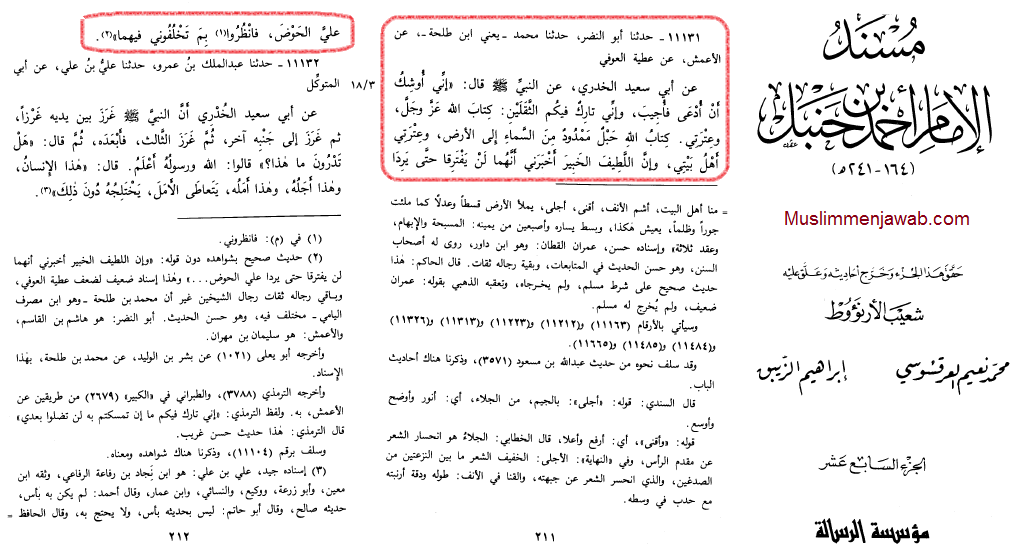 مسند
الإمام أحمد بن حنبل
(١٦٤-٢٤١ه)
Muslimmenjawab.com
حقق هذا الجزء وخرج أحاديثه وعلق عليه
شعيب الأرنؤوط
محمد نعيم العرقسوسي إبراهيم الزيبق
الجزء السابع عشر
مؤسسة الرسالة
١١١٣١- حدثنا أبو النضر، حدثنا محمد ـ يعني ابن طلحة ـ، عن
الأعمش، عن عطية العوفي
عن أبي سعيد الخدري، عن النبي ﷺ قال: «إِنِّي أُوشِكُ
أَنْ أُدْعَى فَأُجِيبَ، وإِنِّي تارِكٌ فيكُم الثَّقَلَيْنِ: كِتابَ اللهِ عَزَّ وجَلَّ،
وعِتْرَتِي. كِتابُ اللهِ حَبْلٌ مَمْدُودٌ مِنَ السَّماءِ إلى الأَرضِ، وعِتْرَتِي
أَهْلُ بَيْتِي، وإِنَّ اللَّطِيفَ الخَبِيرَ أَخْبَرَنِي أَنَّهُما لَنْ يَفْتَرِقا حتَّى يَرِدَا
= منا أهل البيت، أشم الأنف، أقنى، أجلى، يملأ الأرض قسطاً وعدلًا كما ملئت
جوراً وظلماً، يعيش هكذا، وبسط يساره وأصبعين من يمينه: المسبحة والإبهام،
وعقد ثلاثة» وإسناده حسن، عمران القطان: وهو ابن داور، روى له أصحاب
السنن، وهو حسن الحديث في المتابعات، وبقية رجاله ثقات. قال الحاكم: هٰذا
حديث صحيح على شرط مسلم، ولم يخرجاه، وتعقبه الذهبي بقوله: عمران
ضعيف، ولم يُخرج له مسلم.
وسيأتي بالأرقام (١١١٦٣) و(١١٢١٢) و(١١٢٢٣) و(١١٣١٣) و(١١٣٢٦)
و(١١٤٨٤) و(١١٤٨٥) و(١١٦٦٥).
وقد سلف نحوه من حديث عبدالله بن مسعود (٣٥٧١)، وذكرنا هناك أحاديث
الباب.
قال السندي: قوله: «أجلى»: بالجيم، من الجلاء، أي: أنور وأوضح
وأوسع.
قوله: «وأقنى»، أي: أرفع وأعلا، قال الخطابي: الجلاءُ هو انحسار الشعر
عن مقدم الرأس، وفي «النهاية»: الأجلى: الخفيف الشعر ما بين النزعتين من
الصدغين، والذي انحسر الشعر عن جبهته، والقنا في الأنف: طوله ودقة أرنبته
مع حدب في وسطه.
٢١١
عليَّ الحَوْضَ، فانْظُروا(١) بِمَ تَخْلُفُوني فيهما»(٢).
١١١٣٢- حدثنا عبدالملك بنُ عمرو، حدثنا عليُّ بنُ علي، عن أبي
المتوكِّل
١٨/٣
عن أبي سعيد الخُدْري أَنَّ النبيَّ ﷺ غَرَزَ بين يديه غَرْزاً،
ثم غَرَزَ إلى جَنْبِهِ آخر، ثُمَّ غَرَزَ الثَّالث، فأَبْعَدَه، ثُمَّ قال: «هَلْ
تَدْرُونَ ما هٰذا؟» قالوا: الله ورسولُهُ أَعْلَمُ. قال: «هٰذا الإِنسانُ،
وهٰذا أَجَلُهُ، وهٰذا أَمَلُه، يَتَعاطَى الأَمَلَ، يَخْتَلِجُهُ دُونَ ذٰلِكَ»(٣).
(١) في (م): فانظروني.
(٢) حديث صحيح بشواهده دون قوله: «وإن اللطيف الخبير أخبرني أنهما
لن يفترقا حتى يردا علي الحوض...» وهٰذا إسناد ضعيف لضعف عطية العوفي،
وباقي رجاله ثقات رجال الشيخين غير أن محمد بن طلحة ـ وهو ابن مصرف
اليامي ـ مختلف فيه، وهو حسن الحديث. أبو النضر: هو هاشم بن القاسم،
والأعمش: هو سليمان بن مهران.
وأخرجه أبو يعلى (١٠٢١) عن بشر بن الوليد، عن محمد بن طلحة، بهٰذا
الإسناد.
وأخرجه الترمذي (٣٧٨٨)، والطبراني في «الكبير» (٢٦٧٩) من طريقين عن
الأعمش، به. ولفظ الترمذي: «إني تارك فيكم ما إن تمسكتم به لن تضلوا بعدي»
قال الترمذي: هٰذا حديث حسن غريب.
وسلف برقم (١١١٠٤)، وذكرنا هناك شواهده ومعناه.
(٣) إسناده جيد، علي بن علي: هو ابن نِجاد بن رفاعة الرفاعي، وثقه ابن
معين، وأبو زرعة، ووكيع، والنسائي، وابن عمار، وقال أحمد: لم يكن به بأس،
حديثه صالح، وقال أبو حاتم: ليس بحديثه بأس، ولا يحتج به، وقال الحافظ =
٢١٢